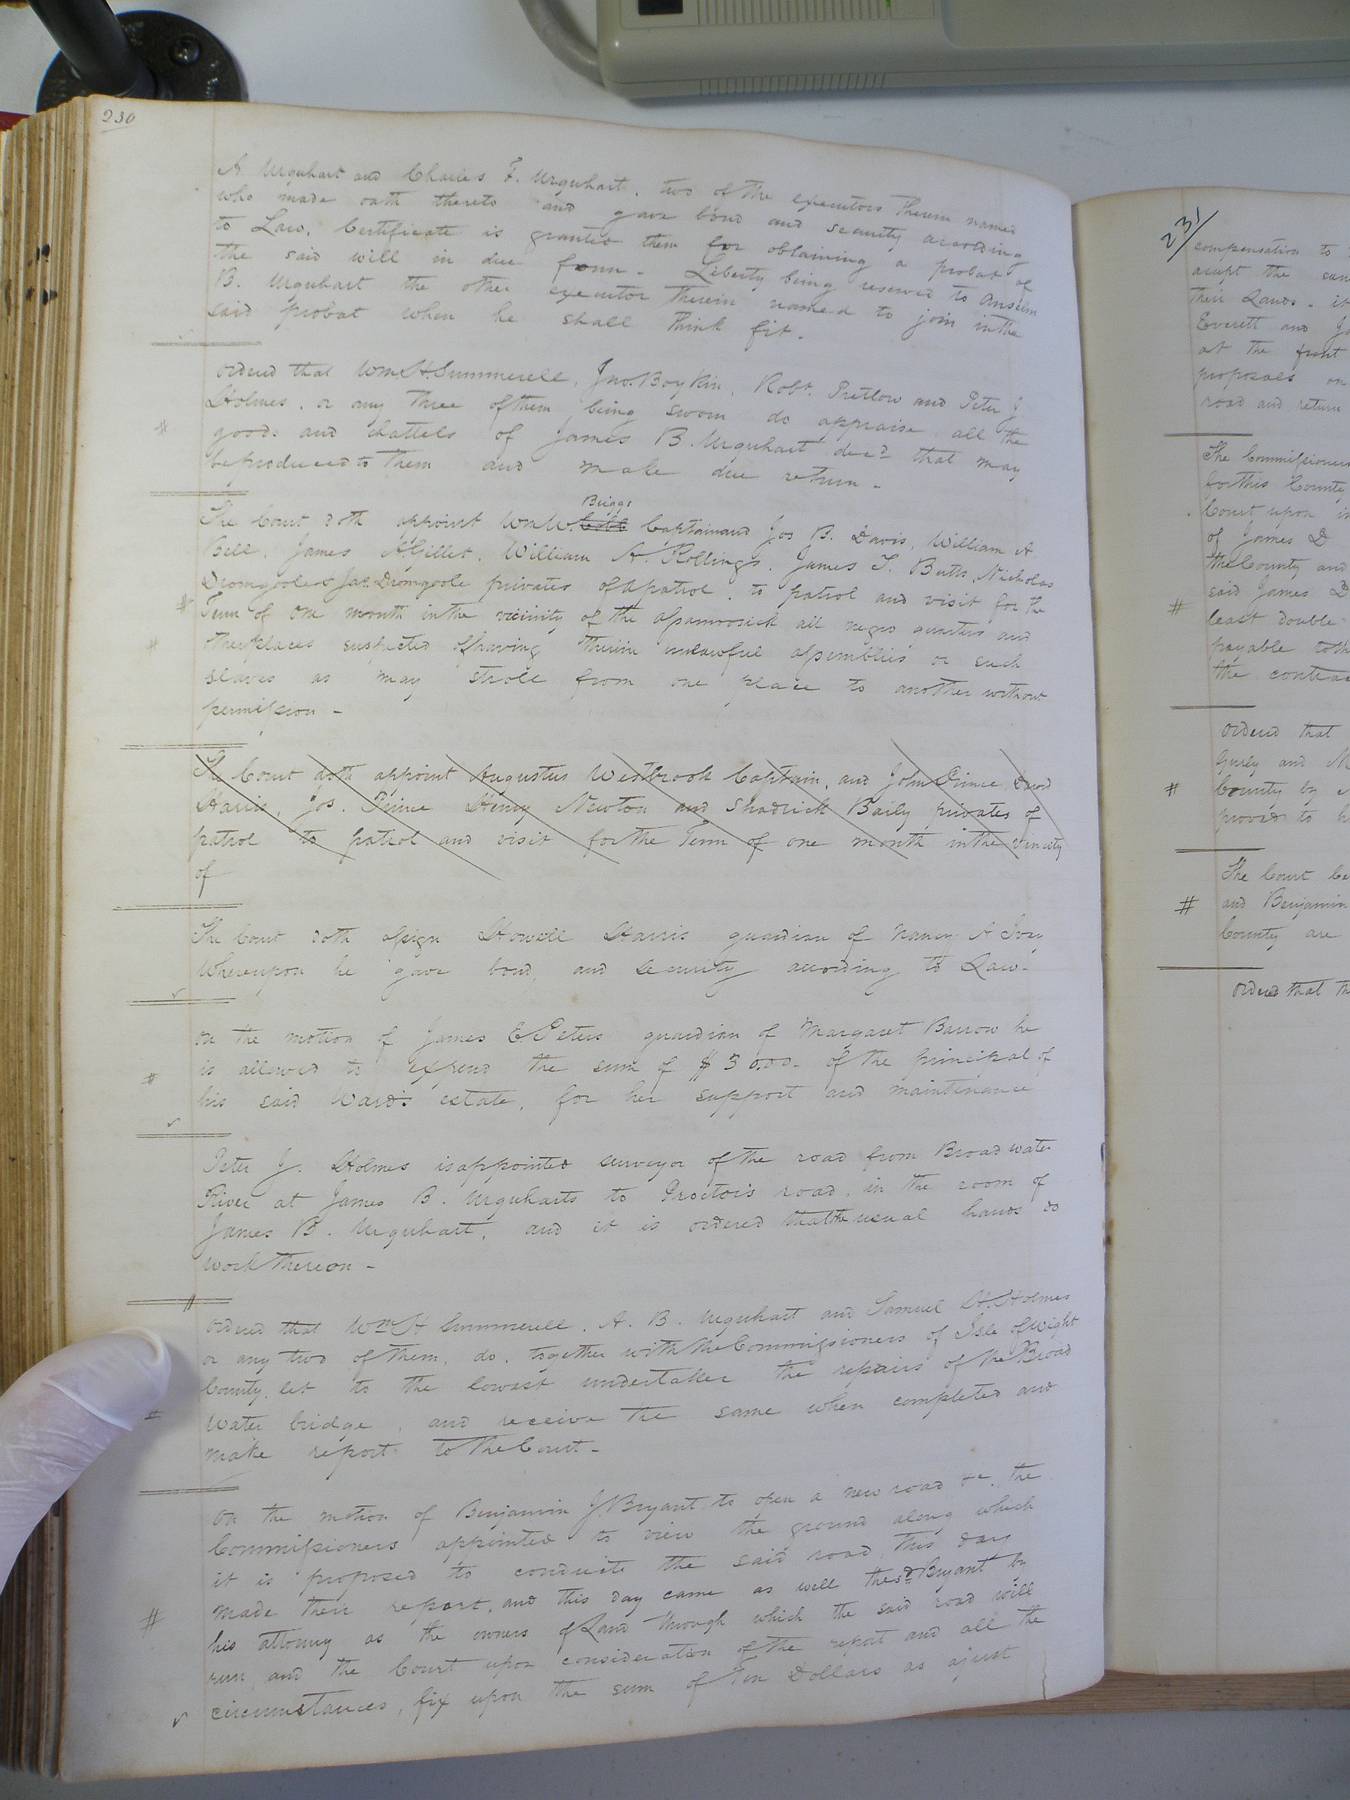 230
A Urquhart and Charles F. Urquhart, two of the executors therein named
who made oath thereto and gave bond and security according
to Law, Certificate is granted them for obtaining a probat of
the said will in due form - Liberty being reserved to Anselm
B. Urquhart the other executor therein named to join in the
said probat when he shall think fit -
Ordered that Wm H. Summerell, Jno. Boykin, Robt. Pretlow and Peter J
Holmes, or any three of them being sworn do appraise all the
goods and chattels of James B. Urquhart decd that may
be produced to them and make due return -
Briggs
The Court doth appoint Wm W. Captain and Jos B. Davis, William A
Bell, James A Gillet, William A. Rollings, James T. Butts, Nicholas
Dromgoole & Jas. Dromgoole privates of a patrol, to patrol and visit for the
Term of one month in the vicinity of the assamoosick all negro quarters and
other places suspected of having therein unlawful assemblies or such
slaves as may strole from one place to another without
permission -
The Court doth appoint Augustus Westbrook Captain, and John Prince David
Harris, Jos. Prince Henry Newton and Shadrick Baily privates of
patrol to patrol and visit for the Term of one month in the vincity
of
The Court doth assign Howell Harris guardian of Nancy A Ivey
Whereupon he gave bond, and security according to Law-
On the motion of James E Peters guardian of Margaret Barrow he
is allowed to expend the sum of $30.00 - of the principal of
his said Wards estate, for her support and maintenance
Peter J. Holmes is appointed surveyor of the road from Broad water
River at James B. Urquharts to Proctois road, in the room of
James B. Urquhart, and it is ordered that the usual hands do
work thereon -
Ordered that Wm H Summerell, A. B. Urquhart and Samuel H. Holmes
or any two of them, do, together with the Commissioners of Isle of Wight
County, let to the lowest undertaker the repairs of the Broad
Water bridge, and receive the same when completed and
make report to the Court -
On the motion of Benjamin J. Bryant to open a new road &c, the
Commissioners appointed to view the ground along which
it is proposed to conduct the said road, this day
made their report, and this day came as well the sd Bryant by
his attorney as the owners of Land through which the said road will
run, and the Court upon consideration of the report and all the
circumstances, fix upon the sum of Ten Dollars as a just
231
compensation to
accept the
their Lands - it
Everett and
at the front
proposals on
road and return
The Commissioners
for this County
Court upon
of James D
the County and
said James D
least double
payable to th
the contra
Ordered that
Gurley and
County by
proved to h
The Court
and Benjamin
County are
Ordered that th